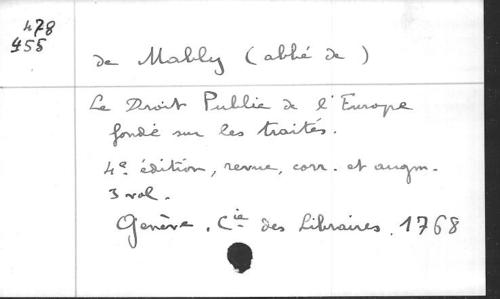 478
455
de Mably (abbé de)
Le Droit Public de l'Europe
fondé sur les traités.
4e édition, revue, corr. et augm.
3 vol.
Genève. Cie des Libraires. 1768